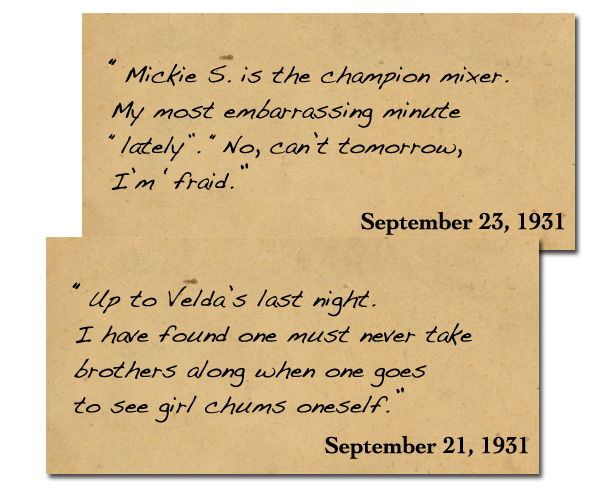 " Mickie S. is the champion mixer.
My most embarrassing minute
"lately"." No, can't tomorrow,
I'm 'fraid."
September 23, 1931
" Up to Velda's last night.
I have found one must never take
brothers along when one goes
to see girl chums oneself."
September 21, 1931